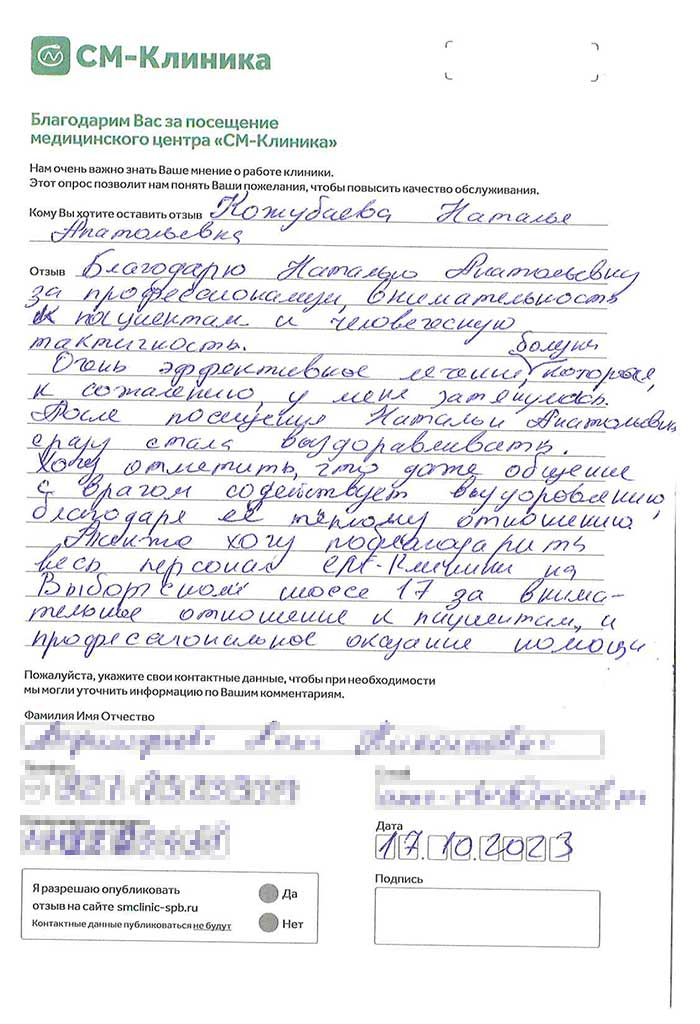 СМ-Клиника
Благодарим Вас за посещение
медицинского центра «СМ-Клиника»
Нам очень важно знать Ваше мнение о работе клиники.
Этот опрос позволит нам понять Ваши пожелания, чтобы повысить качество обслуживания.
Кому Вы хотите оставить отзыв Кожубаева Наталье
Анатольевна
Отзыв Благодарю Наталью Анатольевну
за профессионализм, внимательность
к пациентам и человеческую
тактичность. болезни
Очень эффективное лечение, которая,
к сожалению, у меня затянулась.
После посещения Натальи Анатольевны
сразу стала выздоравливать.
Хочу отметить, что даже общение
с врагом содействует выздоровлению,
благодаря её тёплому отношению.
Также хочу поблагодарить
весь персонал СМ-Клиники на
Выборгском шоссе 17 за внима-
тельное отношение к пациентам, и
профессиональное оказание помощи
Пожалуйста, укажите свои контактные данные, чтобы при необходимости
мы могли уточнить информацию по Вашим комментариям.
Фамилия Имя Отчество
Дата
17.10.2023
Я разрешаю опубликовать
отзыв на сайте smclinic-spb.ru
Контактные данные публиковаться не будут
Да
Нет
Подпись